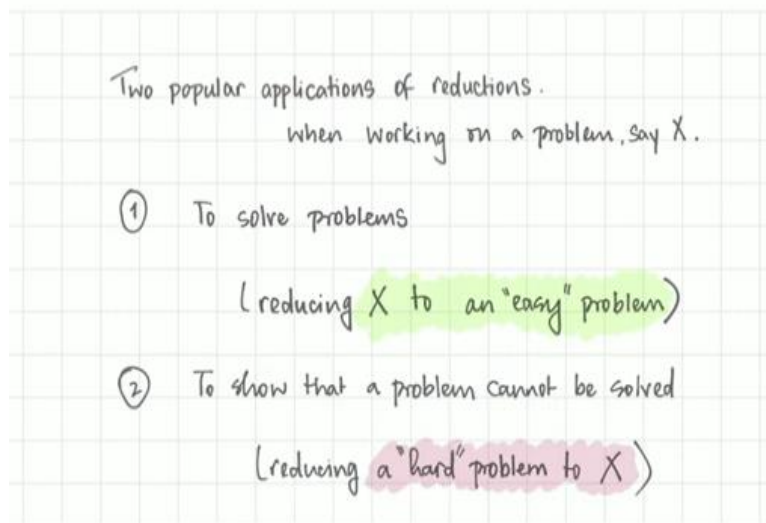 Two popular applications of reductions.
when working on a problem, say X.
① To solve problems
(reducing X to an "easy" problem)
② To show that a problem cannot be solved
(reducing a "hard" problem to X)